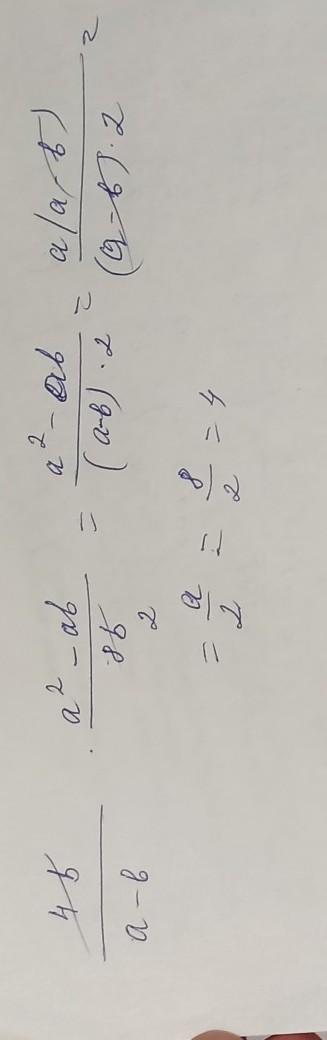 4b/(a-b) · (a² - ab)/(8b) 2 = (a² - ab)/((a-b)·2) = a(a-b)/((a-b)·2) =
= a/2 = 8/2 = 4